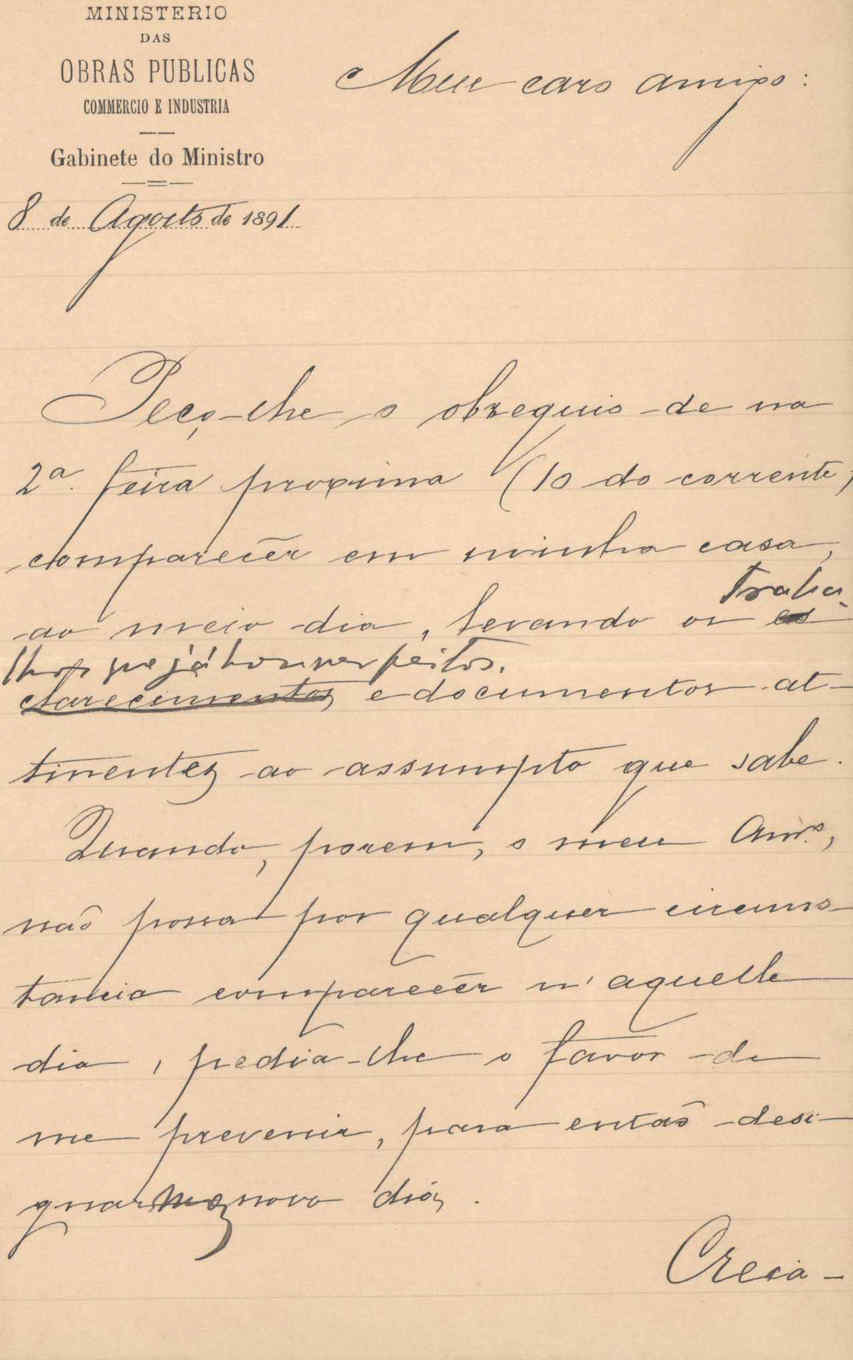 MINISTERIO
DAS
OBRAS PUBLICAS
COMMERCIO E INDUSTRIA
Gabinete do Ministro
8 de Agosto de 1891
Meu caro amigo:
Peço-lhe o obzequio de na
2ª feira proxima (10 do corrente)
comparecêr em minha casa,
ao meio dia, levando os es traba-
lhos que já houver feitos.
clarecimentos e documentos at-
tinentes ao assumpto que sabe.
Quando, porem, o meu Amº,
não possa por qualquer circums-
tancia comparecêr n'aquelle
dia, pedia-lhe o favor de
me prevenir, para então desi-
gnarmos novo dia.
Creia-